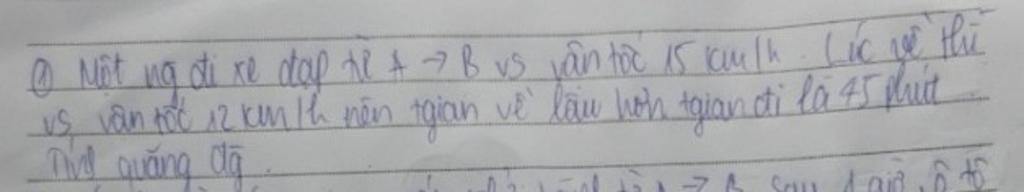 ① Một ng đi xe đạp từ A → B vs vân tốc 15 km/h. Lúc về thì
vs vân tốc 12 km/h nên tgian về lâu hơn tgian đi là 45 phút
Tính quãng đg.
A → B sau 1 giờ, ô tô